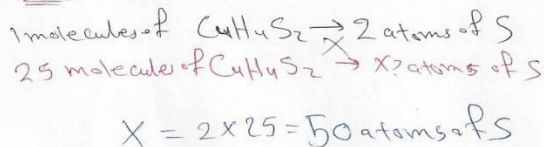 1 molecules of C4H4S2 → 2 atoms of S
X
25 molecules of C4H4S2 → X? atoms of S
X = 2 x 25 = 50 atoms of S